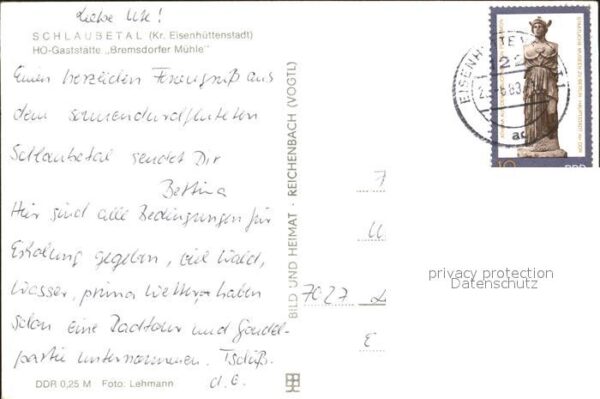 Liebe Ute!
SCHLAUBETAL (Kr. Eisenhüttenstadt)
HO-Gaststätte „Bremsdorfer Mühle"
Einen herzlichen Feriengruß aus
dem sonnendurchfluteten
Schlaubetal sendet Dir
Bettina
Hier sind alle Bedingungen für
Erholung gegeben, viel Wald,
Wasser, prima Wetter, haben
schon eine Radtour und Gondel-
partie unternommen. Tschüß.
d. O.
DDR 0,25 M Foto: Lehmann
BILD UND HEIMAT · REICHENBACH (VOGTL)
7027 L
privacy protection
Datenschutz
DDR